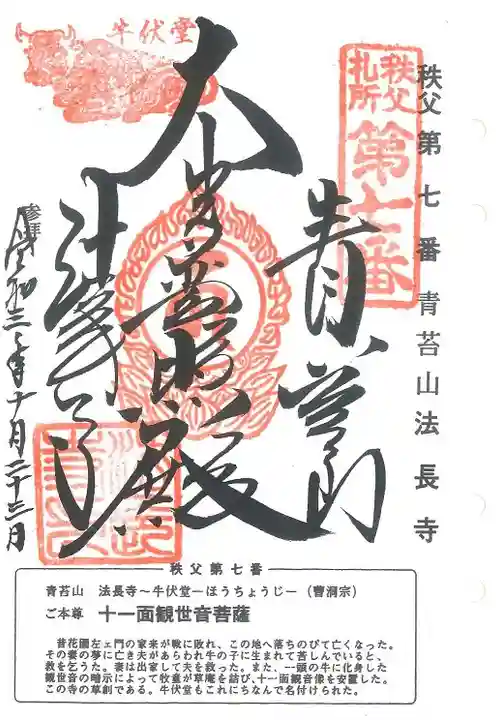 牛伏堂
秩父
札所
第七番
秩父第七番 青苔山法長寺
青苔山
大悲殿
法長寺
参拝
令和三年十月二十三日
秩父第七番
青苔山 法長寺〜牛伏堂ーほうちょうじー(曹洞宗)
ご本尊 十一面観世音菩薩
昔花園左ェ門の家来が戦に敗れ、この地へ落ちのびて亡くなった。
その妻の夢に亡き夫があらわれ牛の子に生まれて苦しんでいると、
救を乞うた。妻は出家して夫を救った。また、一頭の牛に化身した
観世音の暗示によって牧童が草庵を結び、十一面観音像を安置した。
この寺の草創である。牛伏堂もこれにちなんで名付けられた。